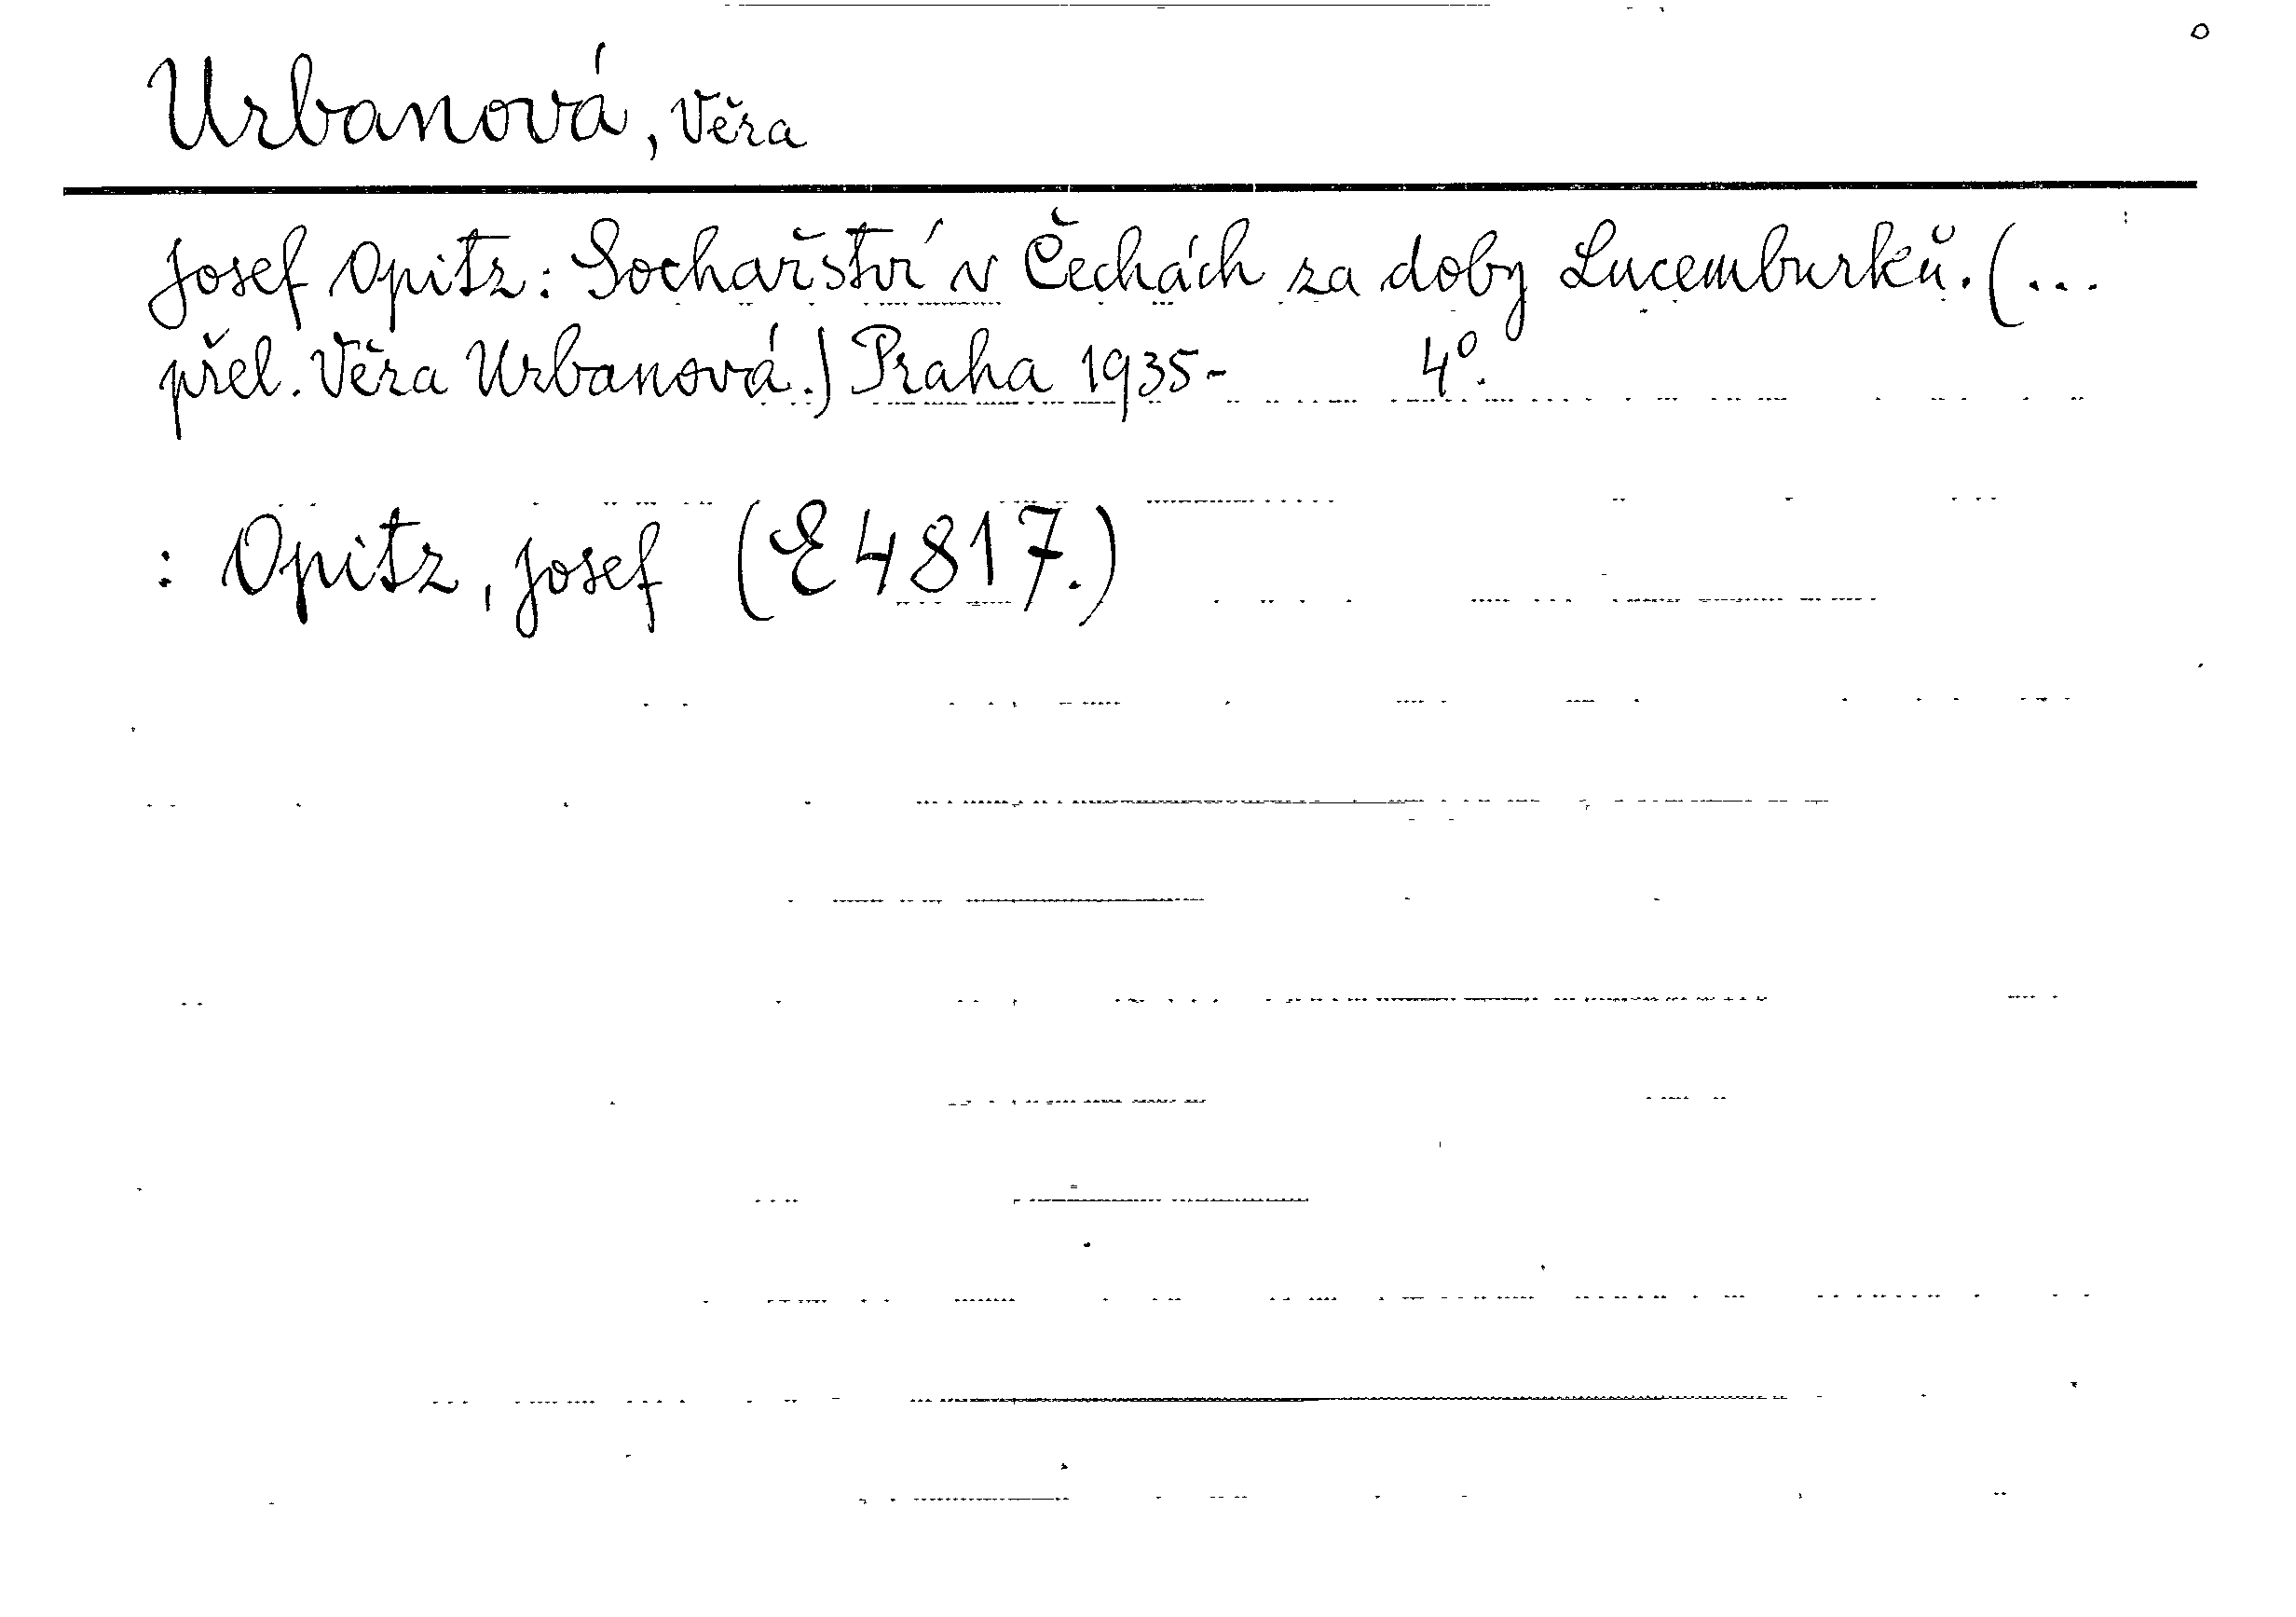 Urbanová, Věra
Josef Opitz: Sochařství v Čechách za doby Lucemburků. (...
přel. Věra Urbanová.) Praha 1935- 4°.
: Opitz, Josef (E 4817.)